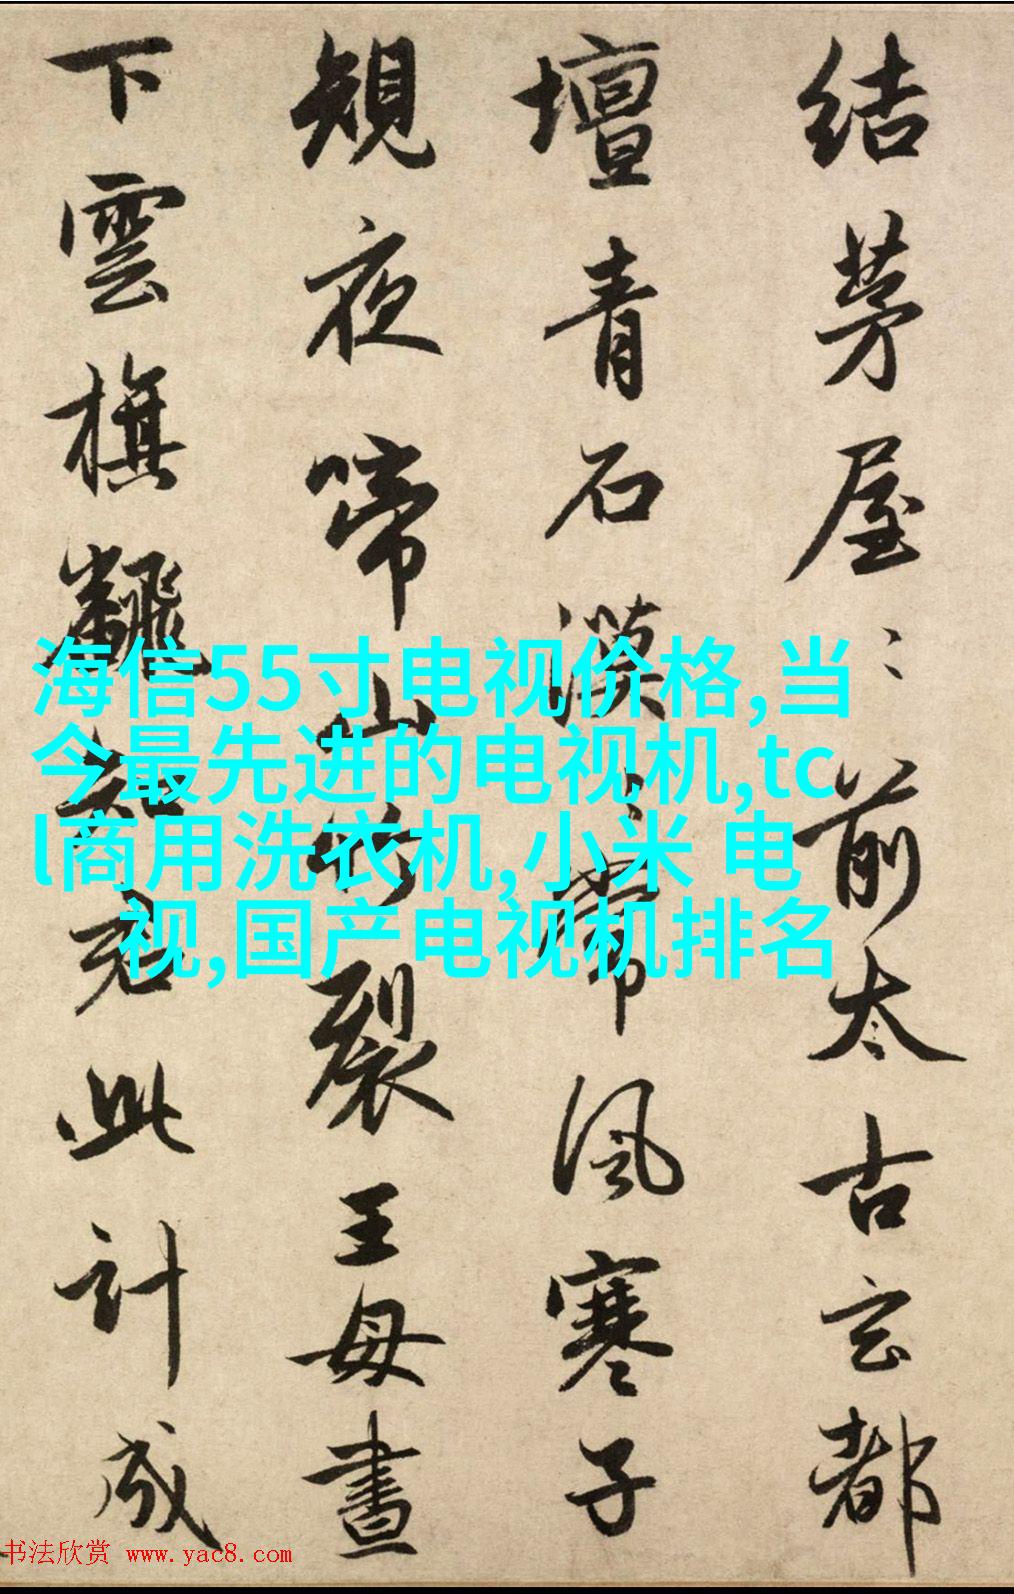 结茅屋〻前太古玄都
壇青石漠〻常風寒子
規夜啼山竹裂王母晝
下雲旗飜知君此計成
海信55寸电视价格,当
今最先进的电视机,tc
l商用洗衣机,小米 电
视,国产电视机排名
书法欣赏 www.yac8.com